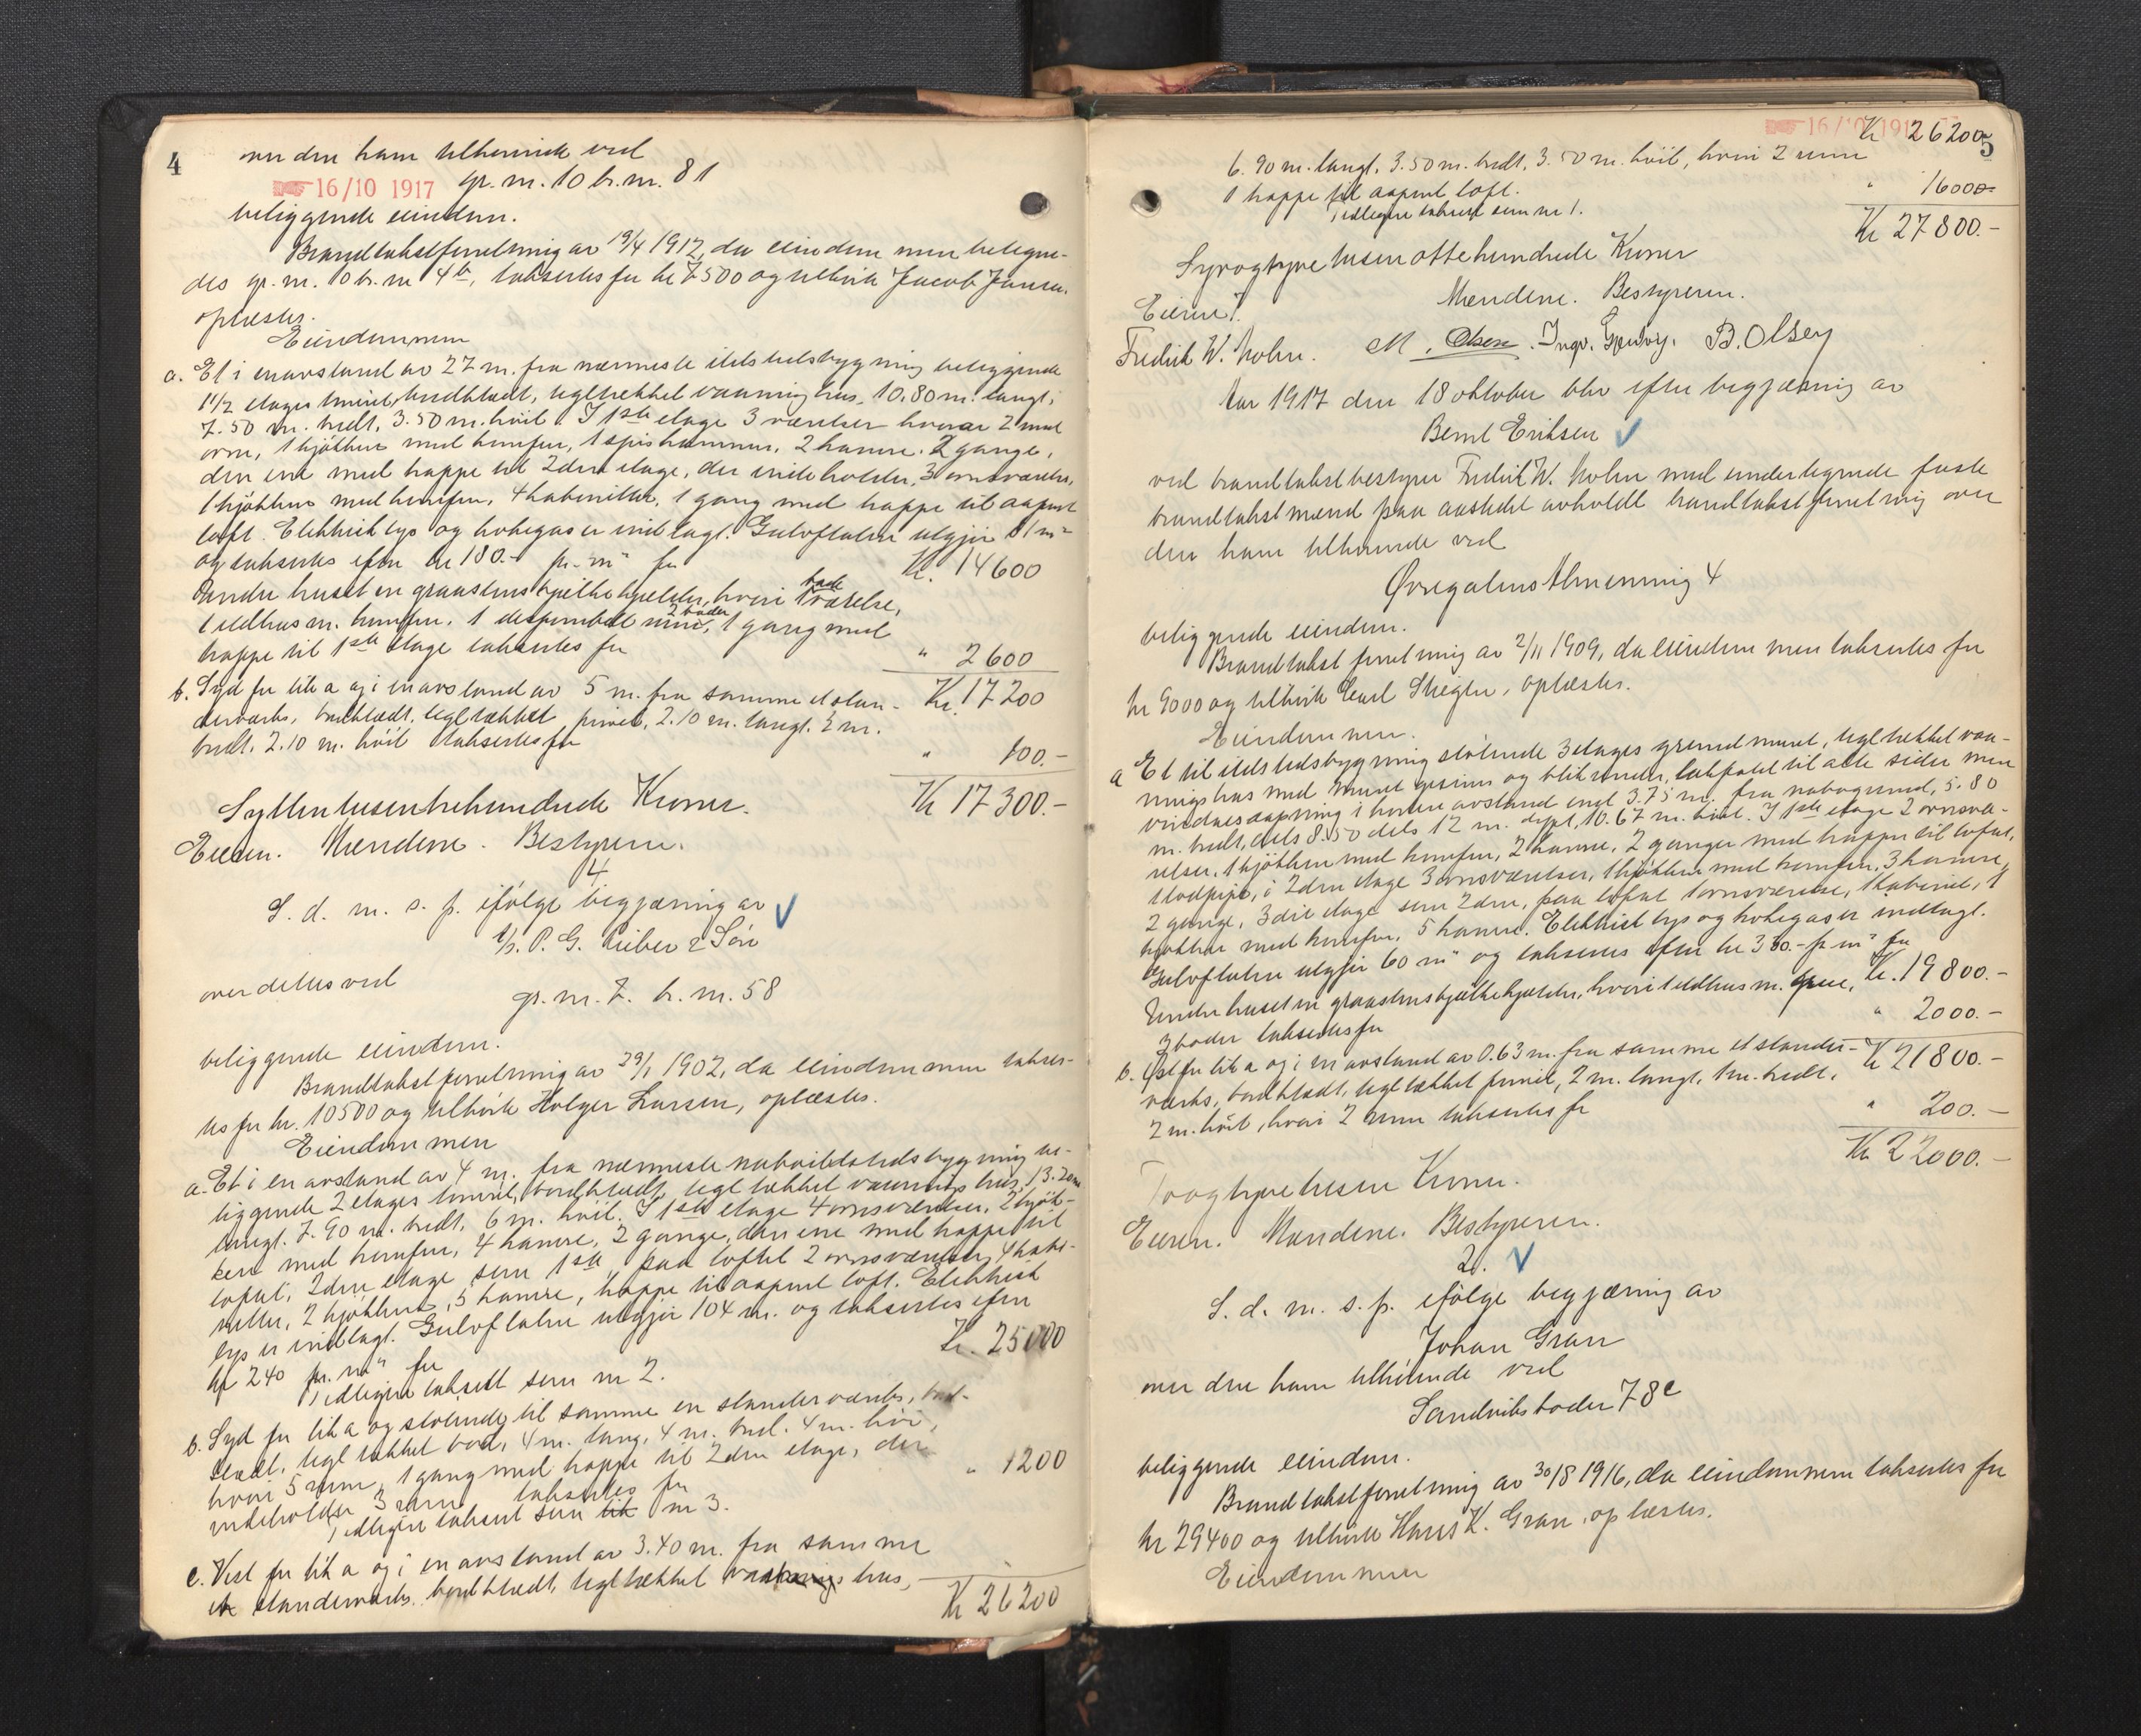 4
over den ham tilhørende ved
16/10 1917 gr. nr. 10 br. nr. 81
beliggende eiendom.
Brandtakstforretning av 19/4 1912, da eiendommen betegne-
des gr. nr. 10 br. nr 4b, taksertes for kr 7500 og tilhørte Jacob Jansen,
oplæstes.
Eiendommen
a. Et i en avstand av 27 m. fra nærmeste ildstedsbygning beliggende
1 1/2 etages tømret, bordklædt, tegltækket vaaningshus, 10.80 m. langt,
7.50 m. bredt, 3.50 m. høit. I 1ste etage 3 værelser hvorav 2 med
ovn, 1 kjøkken med komfur, 1 spiskammer, 2 kamre. 2 gange,
den ene med trappe til 2den etage, der indeholder, 3 ovnsværelser,
1 kjøkken med komfur, 4 kabinetter, 1 gang med trappe til aapent
loft. Elektrisk lys og kokegas er indlagt. Gulvflaten utgjør 81 m²
og taksertes efter kr 180.- pr. m² for Kr. 14600
Under huset en graastens bjelkekjelder, hvori 1 bade værelse,
1 ildhus m. komfur, 1 2 boder, 1 gang med
trappe til 1ste etage taksertes for " 2600
Kr. 17200
b. Syd for lit a og i en avstand av 5 m. fra samme et stan-
derverks, bordklædt, tegltækket privet, 2.10 m. langt. 2 m.
bredt. 2.10 m. høit taksertes for " 100.-
Kr 17300.-
Sytten tusen trehundrede Kroner.
Eieren. Mændene. Bestyreren.
4
S. d. m. s. p. ifølge begjæring av
A/s. P. G. Rieber & Søn
over dettes ved
gr. nr. 7. br. nr. 58
beliggende eiendom.
Brandtakstforretning av 29/1 1902, da eiendommen takser-
tes for kr. 10500 og tilhørte Holger Larsen, oplæstes.
Eiendommen
a. Et i en avstand av 4 m. fra nærmeste naboildstedsbygning be-
liggende 2 etages tømret, bordklædt, tegltækket vaaningshus, 13.20 m
langt. 7.90 m. bredt, 6 m. høit. I 1ste etage 4 ovnsværelser, 2 kjøk-
ken med komfur, 4 kamre, 2 gange, den ene med trappe til
loftet, 2den etage som 1ste, paa loftet 2 ovnsværelser, 4 kabi-
netter, 2 kjøkken, 5 kamre, trappe til aapent loft. Elektrisk
lys er indlagt. Gulvflaten utgjør 104 m. og taksertes efter
kr 240 pr. m² for Kr. 25000
Tidligere taksert som nr 2.
b. Syd for lit a og støtende til samme en standerverks, bord-
klædt, tegltækket bod, 4 m. lang, 4 m. bred. 4 m. høi,
hvori 5 rum, 1 gang med trappe til 2den etage, der
indeholder 3 rum taksertes for " 1200
Tidligere taksert som lit nr 3.
c. Vest for lit a og i en avstand av 3.40 m. fra samme
et standerverks, bordklædt, tegltækket hus,
Kr 26200
5
16/10 1917 Kr 26200
6.90 m. langt, 3.50 m. bredt, 3.50 m. høit, hvori 2 rum
1 trappe til aapent loft. " 1600.-
Tidligere taksert som nr 1.
Kr 27800.-
Syvogtyvetusenottehundrede Kroner
Eieren. Mændene. Bestyreren.
Fredrik W. Holm. M. Olsen. B. Olsen
Aar 1917 den 18 oktober blev efter begjæring av
Bernt Eriksen
ved brandtakstbestyrer Fredrik W. Holm med undertegnede faste
brandtakstmænd paa aastedet avholdt brandtakstforretning over
den ham tilhørende ved
Øvregatens Almenning 4
beliggende eiendom.
Brandtakstforretning av 2/11 1909, da eiendommen taksertes for
kr 9000 og tilhørte Carl Stiegler, oplæstes.
Eiendommen.
a Et til ildstedsbygning støtende 3 etages grundmuret, tegltækket vaa-
ningshus med muret gesims og blikrender, til alle sider men
vinduesaapning i kortere avstand end 3.75 m. fra nabogrund, 5.80
m. bredt, dels 8.50 dels 12 m. dypt, 10.67 m. høit. I 1ste etage 2 ovnsvæ-
relser, 1 kjøkken med komfur, 2 kamre, 2 ganger med trapper til loftet,
1 lodpipe, i 2den etage 3 ovnsværelser, 1 kjøkken med komfur, 3 kamre,
2 gange, 3die etage som 2den, paa loftet 1 ovnsværelse, 1 kabinet, 1
kjøkken med komfur, 5 kamre. Elektrisk lys og kokegas er indlagt.
Gulvflaten utgjør 60 m² og taksertes efter kr 330.- pr m² for Kr. 19800.-
Under huset en graastens bjelkekjelder, hvori 1 ildhus m. grue,
3 boder taksertes for " 2000.-
Kr 21800.-
b. Øst for lit a og i en avstand av 0.63 m. fra samme et stander-
verks, bordklædt, tegltækket privet, 2 m. langt, 1 m. bredt,
2 m. høit, hvori 2 rum taksertes for " 200.-
Kr. 22000.-
Toogtyvetusen Kroner.
Eieren. Mændene. Bestyreren.
2.
S. d. m. s. p. ifølge begjæring av
Johan Gran
over den ham tilhørende ved
Sandviksboder 78c
beliggende eiendom.
Brandtakstforretning av 30/8 1916, da eiendommen taksertes for
kr 29400 og tilhørte Hans K. Gran, oplæstes.
Eiendommen